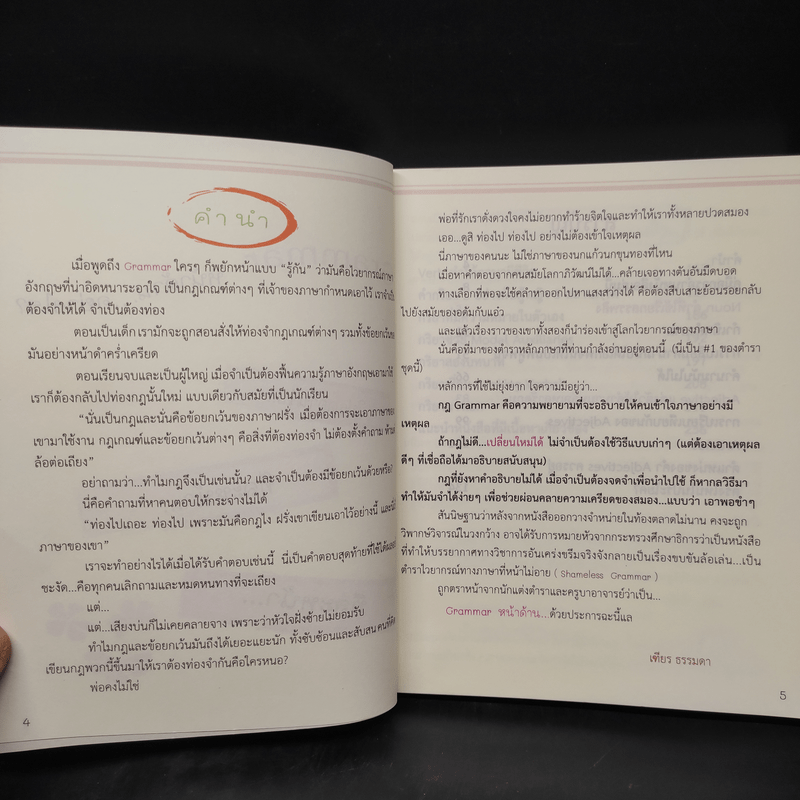 คำนำ
เมื่อพูดถึง Grammar ใครๆ ก็พยักหน้าแบบ “รู้กัน” ว่ามันคือไวยากรณ์ภาษา
อังกฤษที่น่าอิดหนาระอาใจ เป็นกฎเกณฑ์ต่างๆ ที่เจ้าของภาษากำหนดเอาไว้
ต้องจำให้ได้ จำเป็นต้องท่อง
ตอนเป็นเด็ก เรามักจะถูกสอนสั่งให้ท่องจำกฎเกณฑ์ต่างๆ รวมทั้งข้อยกเว้น
มันอย่างหน้าดำคร่ำเครียด
ตอนเรียนจบและเป็นผู้ใหญ่ เมื่อจำเป็นต้องฟื้นความรู้ภาษาอังกฤษเอามาใช้
เราก็ต้องกลับไปท่องกฎนั้นใหม่ แบบเดียวกับสมัยที่เป็นนักเรียน
“นั่นเป็นกฎและนั่นคือข้อยกเว้นของภาษาฝรั่ง เมื่อต้องการจะเอาภาษาของ
เขามาใช้งาน กฎเกณฑ์และข้อยกเว้นต่างๆ คือสิ่งที่ต้องท่องจำ ไม่ต้องตั้งคำถาม ห้าม
ล้อต่อเถียง”
อย่าถามว่า...ทำไมกฎจึงเป็นเช่นนั้น? และจำเป็นต้องมีข้อยกเว้นด้วยหรือ?
นี่คือคำถามที่หาคนตอบให้กระจ่างไม่ได้
“ท่องไปเถอะ ท่องไป เพราะมันคือกฎไง ฝรั่งเขาเขียนเอาไว้อย่างนี้ และนี่
ภาษาของเขา”
เราจะทำอย่างไรได้เมื่อได้รับคำตอบเช่นนี้ นี่เป็นคำตอบสุดท้ายที่ใช้ได้ผล
ชะงัด...คือทุกคนเลิกถามและหมดหนทางที่จะเถียง
แต่...
แต่...เสียงบ่นก็ไม่เคยคลายจาง เพราะว่าหัวใจฝั่งซ้ายไม่ยอมรับ
ทำไมกฎและข้อยกเว้นมันถึงได้เยอะแยะนัก ทั้งซับซ้อนและสับสน คนที่คิด
เขียนกฎพวกนี้ขึ้นมาให้เราต้องท่องจำกันคือใครหนอ?
พ่อคงไม่ใช่
4
พ่อที่รักเราดั่งดวงใจคงไม่อยากทำร้ายจิตใจและทำให้เราทั้งหลายปวดสมอง
เออ...ดูสิ ท่องไป ท่องไป อย่างไม่ต้องเข้าใจเหตุผล
นี่ภาษาของคนนะ ไม่ใช่ภาษาของนกแก้วนกขุนทองที่ไหน
เมื่อหาคำตอบจากคนสมัยโลกาภิวัฒน์ไม่ได้...คล้ายเจอทางตันอันมืดบอด
ทางเลือกที่พอจะใช้คลำหาออกไปหาแสงสว่างได้ คือต้องสืบเสาะย้อนรอยกลับ
ไปยังสมัยของอดัมกับแอ๋ว
และแล้วเรื่องราวของเขาทั้งสองก็นำร่องเข้าสู่โลกไวยากรณ์ของภาษา
นั่นคือที่มาของตำราหลักภาษาที่ท่านกำลังอ่านอยู่ตอนนี้ (นี่เป็น #1 ของตำรา
ชุดนี้)
หลักการที่ใช้ไม่ยุ่งยาก ใจความมีอยู่ว่า...
กฎ Grammar คือความพยายามที่จะอธิบายให้คนเข้าใจภาษาอย่างมี
เหตุผล
ถ้ากฎไม่ดี...เปลี่ยนใหม่ได้ ไม่จำเป็นต้องใช้วิธีแบบเก่าๆ (แต่ต้องเอาเหตุผล
ดีๆ ที่เชื่อถือได้มาอธิบายสนับสนุน)
กฎที่ยังหาคำอธิบายไม่ได้ เมื่อจำเป็นต้องจดจำเพื่อนำไปใช้ ก็หากลวิธีมา
ทำให้มันจำได้ง่ายๆ เพื่อช่วยผ่อนคลายความเครียดของสมอง...แบบว่า เอาพอขำๆ
สันนิษฐานว่าหลังจากหนังสือออกวางจำหน่ายในท้องตลาดไม่นาน คงจะถูก
วิพากษ์วิจารณ์ในวงกว้าง อาจได้รับการหมายหัวจากกระทรวงศึกษาธิการว่าเป็นหนังสือ
ที่ทำให้บรรยากาศทางวิชาการอันเคร่งขรึมจริงจังกลายเป็นเรื่องขบขันล้อเล่น...เป็น
ตำราไวยากรณ์ทางภาษาที่หน้าไม่อาย (Shameless Grammar)
ถูกตราหน้าจากนักแต่งตำราและครูบาอาจารย์ว่าเป็น...
Grammar หน้าด้าน...ด้วยประการฉะนี้แล
เฑียร ธรรมดา
5